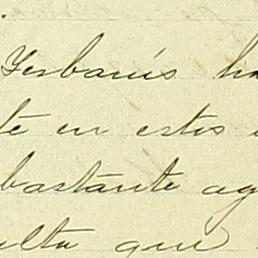 Yerbanís ha
te en estos
bastante ag
ulta que